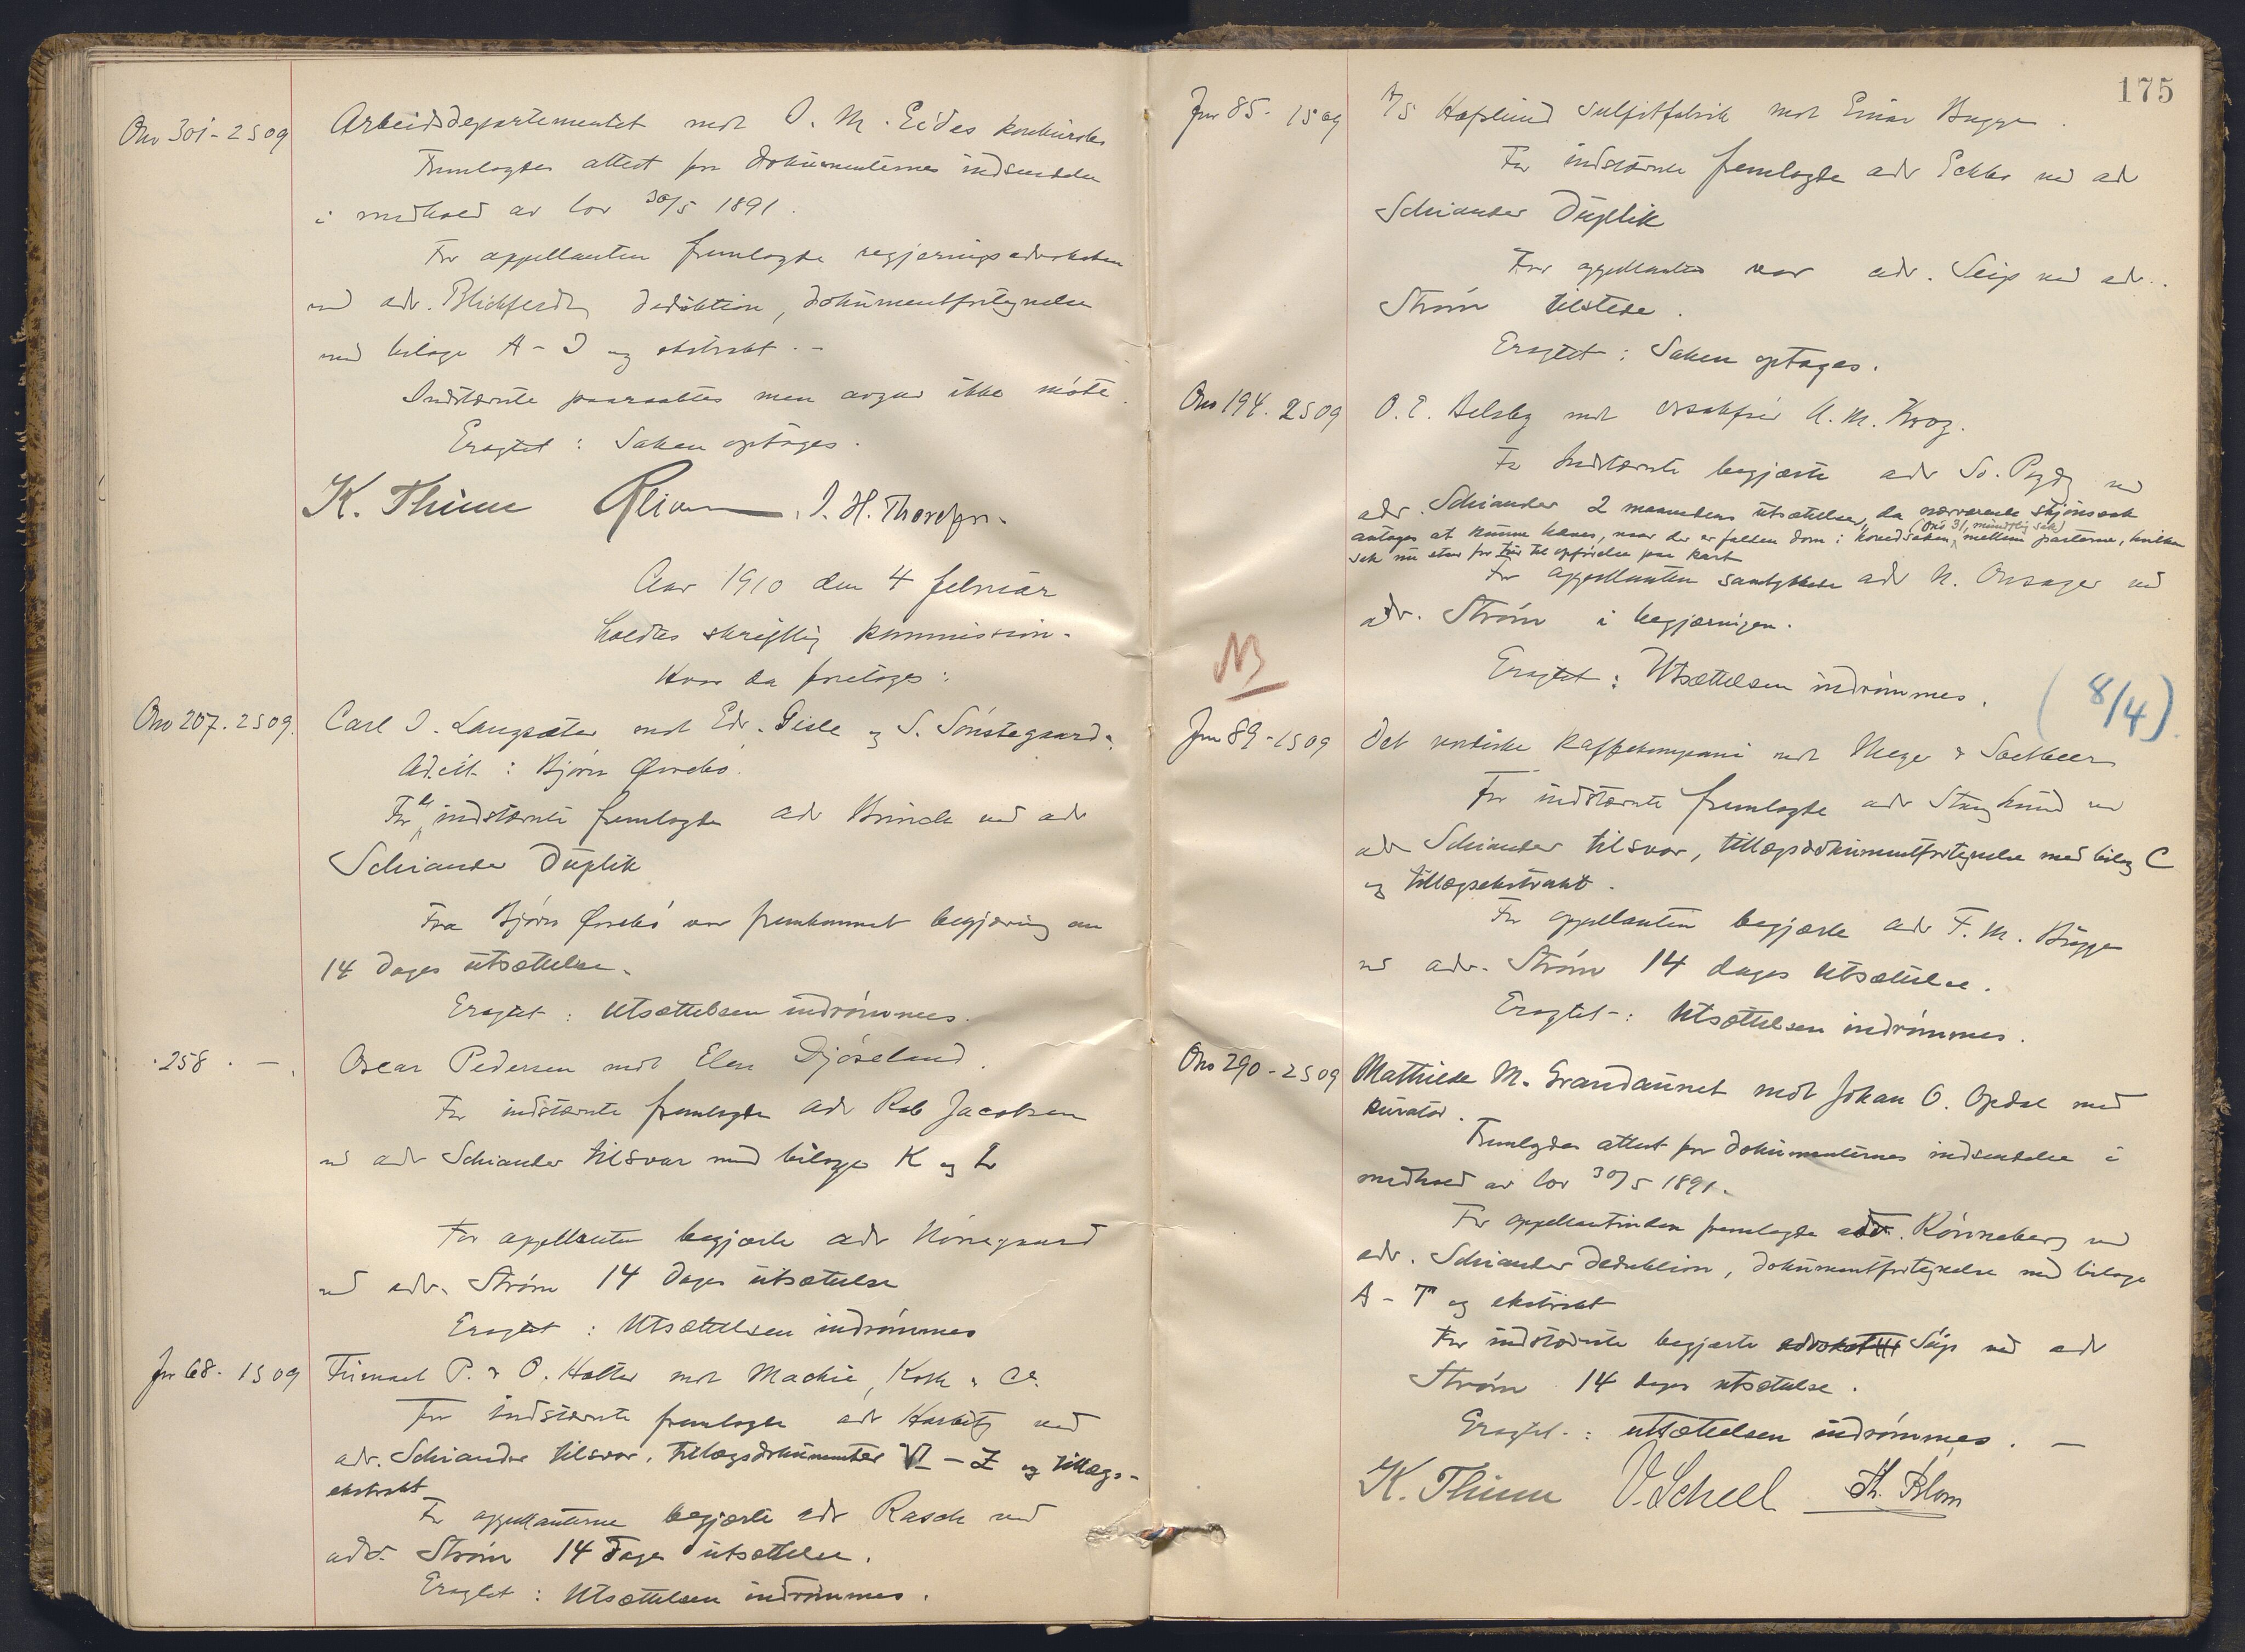 Ono 301 - 2 S 09
Arbeidsdepartementet mot O. M. Eides konkursbo
Fremlagdes attest for dokumenternes indsendelse
i medhold av lov 30/5 1891.
For appellanten fremlagde regjeringsadvokaten
ved adv. Blichfeldt deduktion, dokumentfortegnelse
med bilage A - I og ekstrakt. -
Indstevnte paaraabtes men avgav ikke møte.
Eragtet : Saken optages.
K. Thime . I. H. Thoresen.
Aar 1910 den 4 februar
holdtes skriftlig kommission.
Hvor da foretoges :
Ono 207. 2 S 09.
Carl I. Langsæter mot Edv. Gisle og S. Sønstegaard.
Ad.cit. : Bjørn Ørrebø.
For de indstævnte fremlagde adv Brinch ved adv
Schiander Duplik
Fra Bjørn Ørrebø var fremkommet begjæring om
14 dages utsættelse.
Eragtet : Utsættelsen indrømmes.
" 258 . - .
Oscar Pedersen mot Elen Djøseland.
For indstævnte fremlagde adv Rob Jacobsen
ved adv Schiander tilsvar med bilage K og L
For appellanten begjærte adv Nørregaard
ved adv. Strøm 14 dages utsættelse
Eragtet : Utsættelsen indrømmes
Jnr 68. 1 S 09
Firmaet P. & O. Halter mot Mackie, Koth & Co.
For indstævnte fremlagde adv Harbitz ved
adv. Schiander tilsvar, tillægsdokumenter - Z og tillægs-
ekstrakt
For appellanterne begjærte adv Rasch ved
adv. Strøm 14 dages utsættelse.
Eragtet : Utsættelsen indrømmes.
175
Jnr 85. 1 S 09
A/S Hafslund Sulfitfabrik mot Einar Bugge.
For indstævnte fremlagde adv Eckbo ved adv
Schiander Duplik
For appellanten var adv. Seip ved adv.
Strøm tilstede.
Eragtet : Saken optages.
Ono 194. 2 S 09
O. E. Belsby mot ovsakfører A. M. Krog.
For Indstævnte begjærte adv So. ved
adv. Schiander 2 maaneders utsættelse, da nærværende skjønssak
antages at kunne hæves, naar der er falden dom i hovedsaken (Ono 31, mundtlig sak) mellem parterne, hvilken
sak nu staar for tur til opførelse paa kart
For appellanten samtykkede adv N. Onsager ved
adv. Strøm i begjæringen.
NB
Eragtet : Utsættelsen indrømmes.
(8/4)
Jnr 89 - 1 S 09
Det nordiske kaffekompani mot Mege & Soetbeer
For indstævnte fremlagde adv Stang Lund ved
adv Schiander tilsvar, tillægsdokumentfortegnelse med bilag C
og tillægsekstrakt.
For appellanten begjærte adv F. M. Bugge
ved adv. Strøm 14 dages utsættelse.
Eragtet - : Utsættelsen indrømmes.
Ono 290 - 2 S 09
Mathilde M. Grandaunet mot Johan O. Opdal med
kurator.
Fremlagdes attest for dokumenternes indsendelse i
medhold av lov 30/5 1891.
For appellantinden fremlagde adv. Rønneberg ved
adv. Schiander deduktion, dokumentfortegnelse med bilage
A - T og ekstrakt
For indstævnte begjærte advokat Seip ved adv
Strøm 14 dages utsættelse.
Eragtet. : utsættelsen indrømmes. -
K. Thime V. Scheel Th. Blom